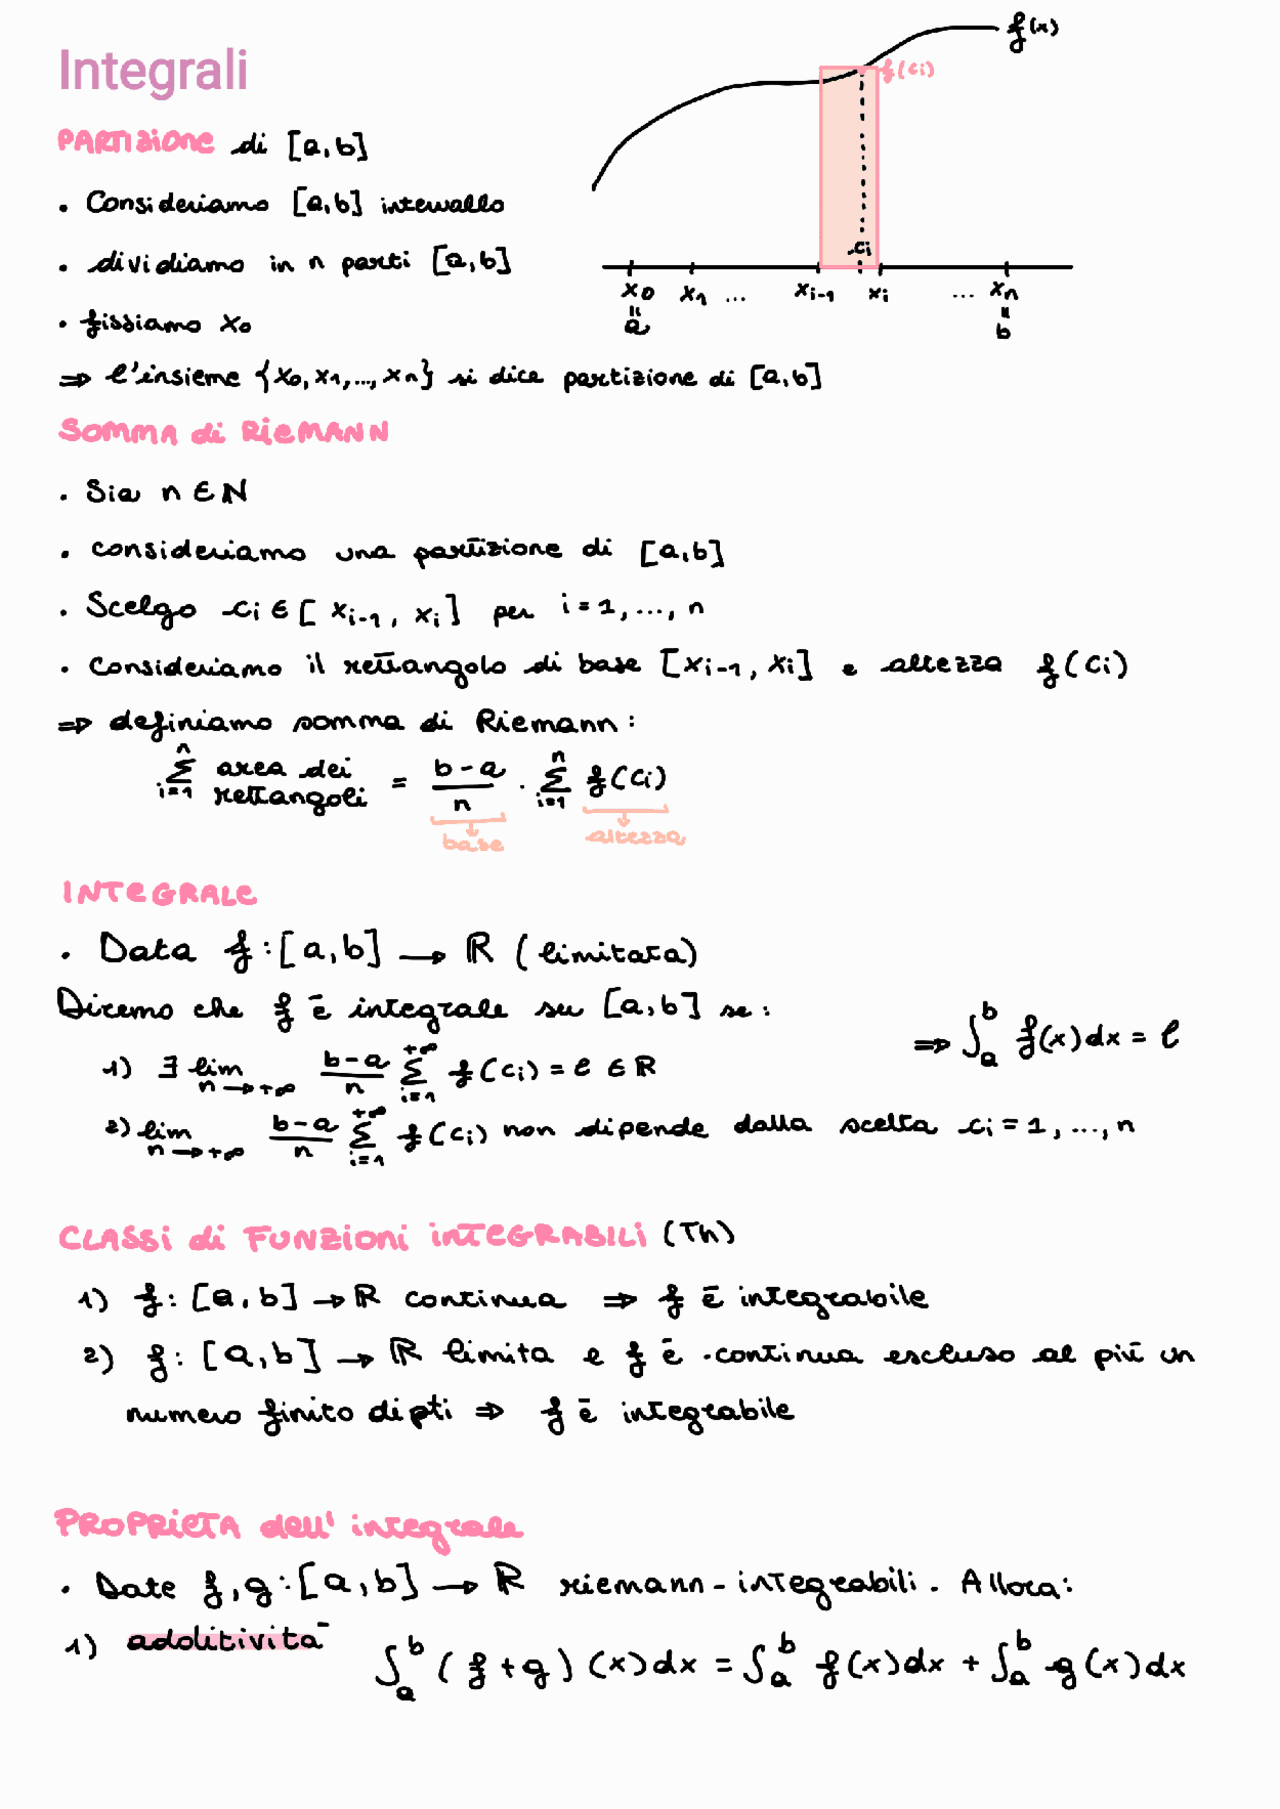 Integrali
f(x)
f(ci)
PARTIZIONE di [a,b]
• Consideriamo [a,b] intervallo
• dividiamo in n parti [a,b]
ci
x0 x1 ... xi-1 xi ... xn
= =
a b
• fissiamo x0
⇒ l'insieme {x0, x1, ..., xn} si dice partizione di [a,b]
SOMMA di RIEMANN
• Sia n ∈ N
• consideriamo una partizione di [a,b]
• Scelgo ci ∈ [xi-1, xi] per i = 1, ..., n
• Consideriamo il rettangolo di base [xi-1, xi] e altezza f(ci)
⇒ definiamo somma di Riemann:
∑_{i=1}^{n} area dei rettangoli = (b-a)/n · ∑_{i=1}^{n} f(ci)
base altezza
INTEGRALE
• Data f: [a,b] → ℝ (limitata)
Diremo che f è integrale su [a,b] se:
⇒ ∫_a^b f(x)dx = l
1) ∃ lim_{n→+∞} (b-a)/n ∑_{i=1}^{+∞} f(ci) = l ∈ ℝ
2) lim_{n→+∞} (b-a)/n ∑_{i=1}^{+∞} f(ci) non dipende dalla scelta ci = 1, ..., n
CLASSI di FUNZIONI INTEGRABILI (Th)
1) f: [a,b] → ℝ continua ⇒ f è integrabile
2) f: [a,b] → ℝ limita e f è continua escluso al più un
numero finito di pti ⇒ f è integrabile
PROPRIETA dell'integrale
• Date f,g: [a,b] → ℝ riemann-integrabili. Allora:
1) additività
∫_a^b (f+g)(x)dx = ∫_a^b f(x)dx + ∫_a^b g(x)dx